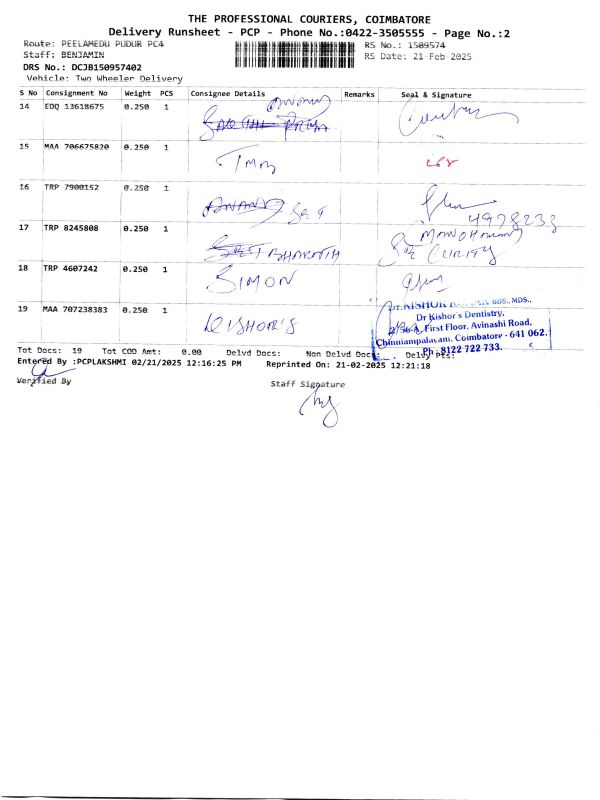 THE PROFESSIONAL COURIERS, COIMBATORE
Delivery Runsheet - PCP - Phone No.:0422-3505555 - Page No.:2
Route: PEELAMEDU PUDUR PC4
RS No.: 1509574
Staff: BENJAMIN
RS Date: 21-Feb-2025
DRS No.: DCJB150957402
Vehicle: Two Wheeler Delivery
S No Consignment No Weight PCS Consignee Details Remarks Seal & Signature
14 EDQ 13618675 0.250 1
15 MAA 706675820 0.250 1
16 TRP 7900152 0.250 1
4978233
17 TRP 8245808 0.250 1 BHARATH
18 TRP 4607242 0.250 1 SIMON
19 MAA 707238383 0.250 1 KISHOR'S
Dr.KISHOR BDS., MDS.,
Dr Kishor's Dentistry,
First Floor, Avinashi Road,
Chinniampalayam, Coimbatore - 641 062.
Ph : 8122 722 733.
Tot Docs: 19 Tot COD Amt: 0.00 Delvd Docs: Non Delvd Docs: Delvy Pts:
Entered By :PCPLAKSHMI 02/21/2025 12:16:25 PM Reprinted On: 21-02-2025 12:21:18
Verified By
Staff Signature